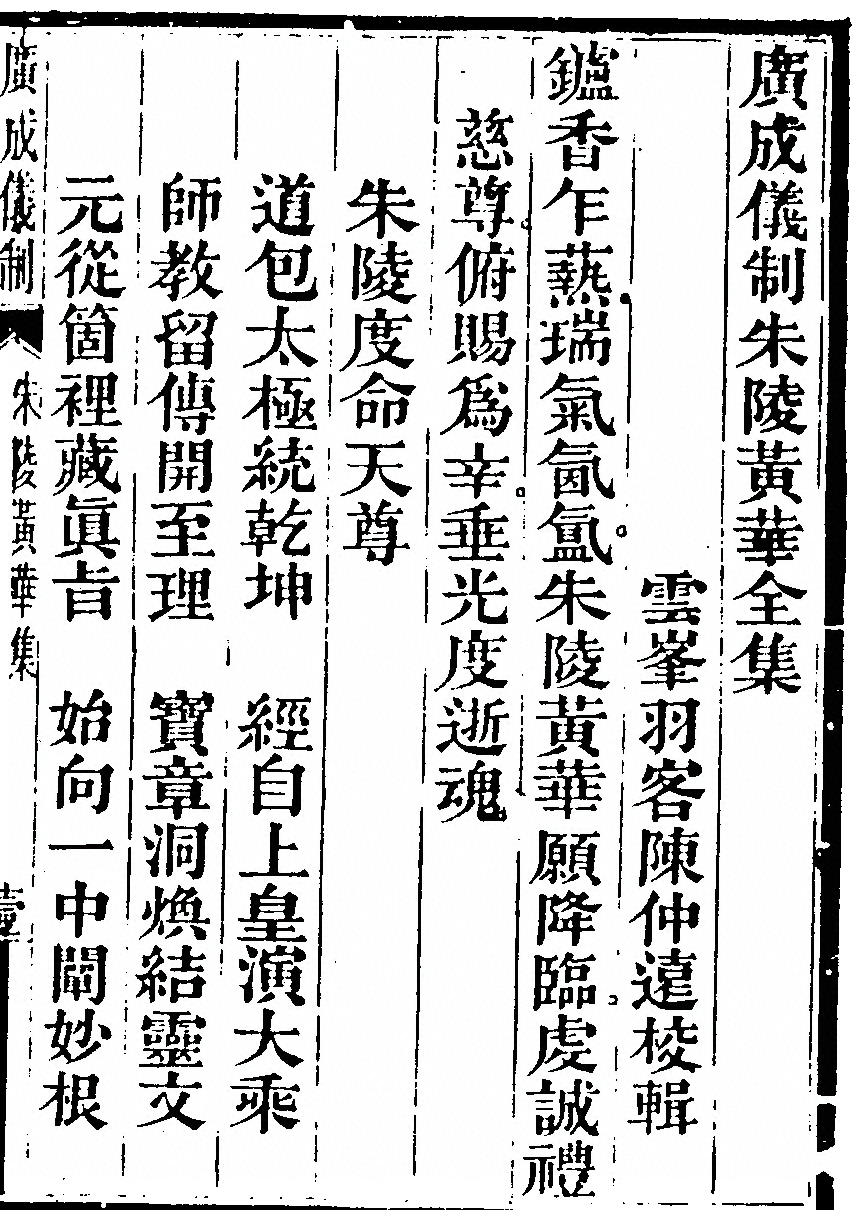 廣成儀制朱陵黃華全集
雲峯羽客陳仲遠校輯
鑪香乍爇瑞氣氤氳朱陵黃華願降臨虔誠禮
慈尊俯賜爲幸垂光度逝魂
朱陵度命天尊
道包太極統乾坤　經自上皇演大乘
師教留傳開至理　寶章洞煥結靈文
元從箇裡藏眞旨　始向一中闡妙根
廣成儀制　朱陵黃華集　壹